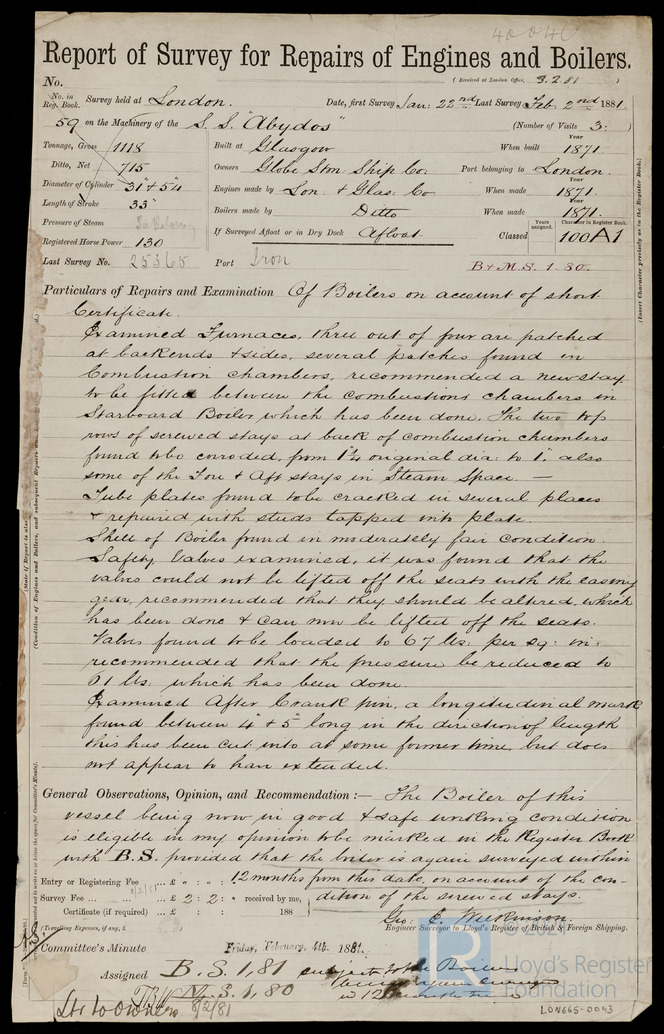 40040
Report of Survey for Repairs of Engines and Boilers.
No. (Received at London Office, 3.2.81 )
No. in Reg. Book. Survey held at London. Date, first Survey Jan: 22nd Last Survey Feb. 2nd 1881.
59 on the Machinery of the S.S. "Abydos" (Number of Visits 3:)
Tonnage, Gross 1118 Built at Glasgow When built Year 1871
Ditto, Net 715 Owners Globe Stm: Ship Co. Port belonging to London.
Diameter of Cylinder 31" & 54 Engines made by Lon: & Glas: Co When made Year 1871.
Length of Stroke 33" Boilers made by Ditto When made 1871.
Pressure of Steam If Surveyed Afloat or in Dry Dock Afloat Classed Years assigned. Character in Register Book. 100A1
Registered Horse Power 130
Last Survey No. 25365 Port Iron B & M.S. 1.80.
Particulars of Repairs and Examination Of Boilers on account of short
Certificate.
Examined Furnaces, three out of four are patched
at backends & sides, several patches found in
Combustion chambers, recommended a new stay
to be fitted between the combustions chambers in
Starboard Boiler which has been done. The two top
rows of screwed stays at back of combustion chambers
found to be corroded, from 1¼ original dia: to 1", also
some of the Fore & Aft stays in Steam Space. —
Tube plates found to be cracked in several places
& repaired with studs tapped into plate.
Shell of Boiler found in moderately fair condition.
Safety Valves examined, it was found that the
valves could not be lifted off the seats with the easing
gear, recommended that they should be altered, which
has been done & can now be lifted off the seats.
Valves found to be loaded to 67 lbs: per sq: in:
recommended that the pressure be reduced to
61 lbs. which has been done.
Examined After Crank pin, a longitudinal mark
found between 4" & 5" long in the direction of length
this has been cut into at some former time, but does
not appear to have extended.
General Observations, Opinion, and Recommendation:— The Boiler of this
vessel being now in good & safe working condition
is eligible in my opinion to be marked in the Register Book
with B.S. provided that the boiler is again surveyed within
Entry or Registering Fee ... £ " : " : 12 months from this date, on account of the con-
Survey Fee ... £ 2 : 2 : " received by me, dition of the screwed stays.
Certificate (if required) ... £ : : 188
Geo: E. Wilkinson.
(Travelling Expenses, if any, £ Engineer Surveyor to Lloyd's Register of British & Foreign Shipping.
Committee's Minute Friday, February, 4th. 1881.
Assigned B.S. 1,81 subject to the Boilers
being again surveyed
M.S. 1,80 in 12 months
8/2/81
© 2021
Lloyd's Register
Foundation
LON666-0043
(Insert Character precisely as in the Register Book.)